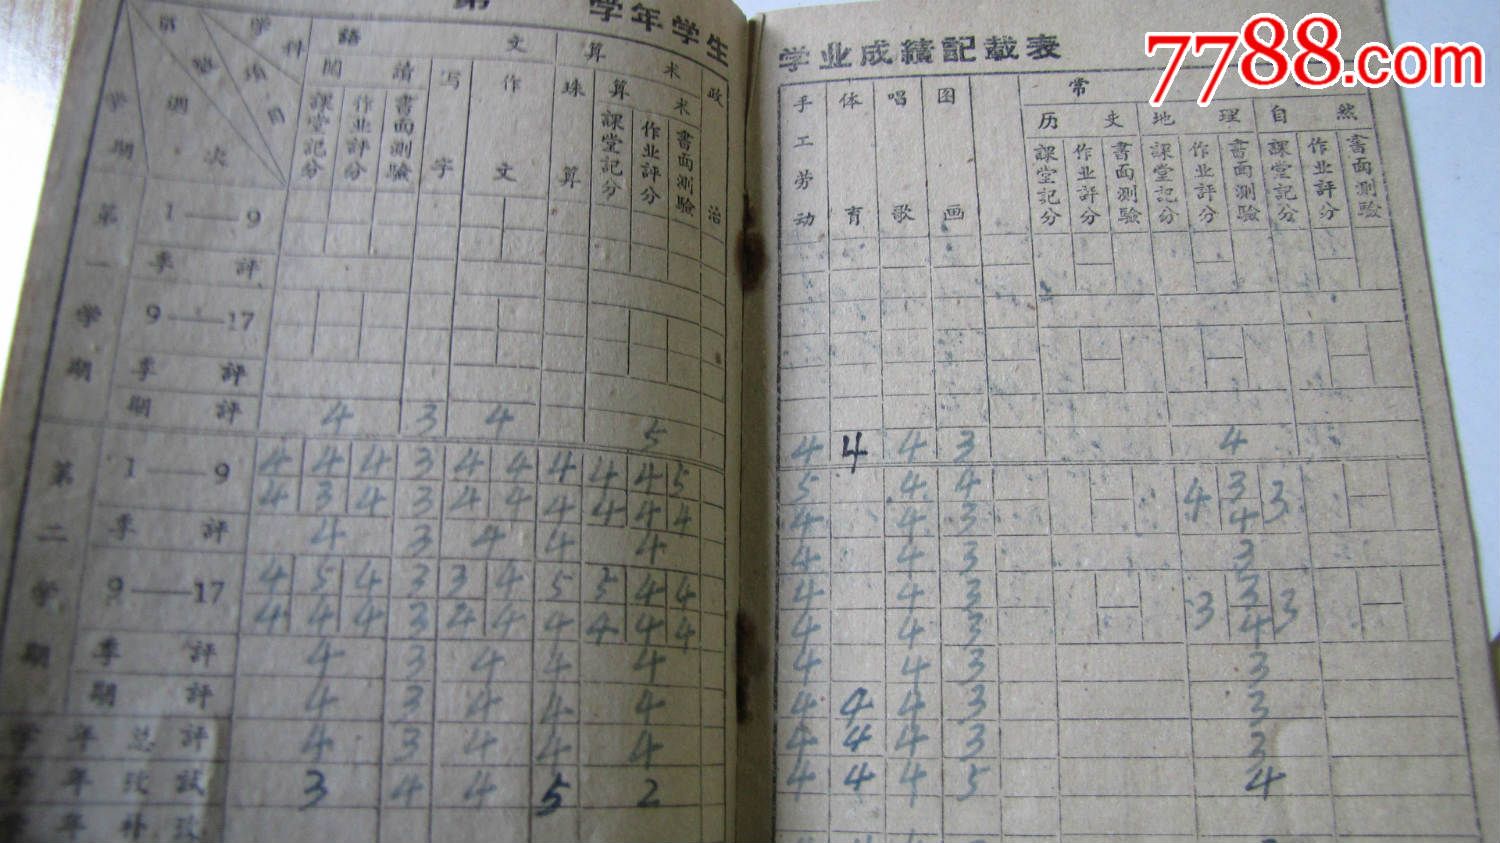 第 学年学生
学业成績記載表
7788.com
学科
項目
週次
学期
語文
算术
政治
閱讀
写字
作文
珠算
算术
課堂記分
作业評分
書面測驗
課堂記分
作业評分
書面測驗
手工劳动
体育
唱歌
图画
常
历史
地理
自然
課堂記分
作业評分
書面測驗
課堂記分
作业評分
書面測驗
課堂記分
作业評分
書面測驗
第一学期
1——9
季評
9——17
季評
期評 4 3 4 5 4 4 4 3 4
第二学期
1——9 4 4 4 3 4 4 4 4 4 5 5 4 4 4 3 3
4 3 4 3 4 4 4 4 4 4 4 4 3 4
季評 4 3 4 4 4 4 4 3 3
9——17 4 5 4 3 3 4 5 5 4 4 4 4 3 3 3 3
4 4 4 3 4 4 4 4 4 4 4 4 3 4
季評 4 3 4 4 4 4 4 3 3
期評 4 3 4 4 4 4 4 4 3 3
学年总評 4 3 4 4 4 4 4 4 3 3
学年攷試 3 4 4 5 2 4 4 4 5 4
学年补攷